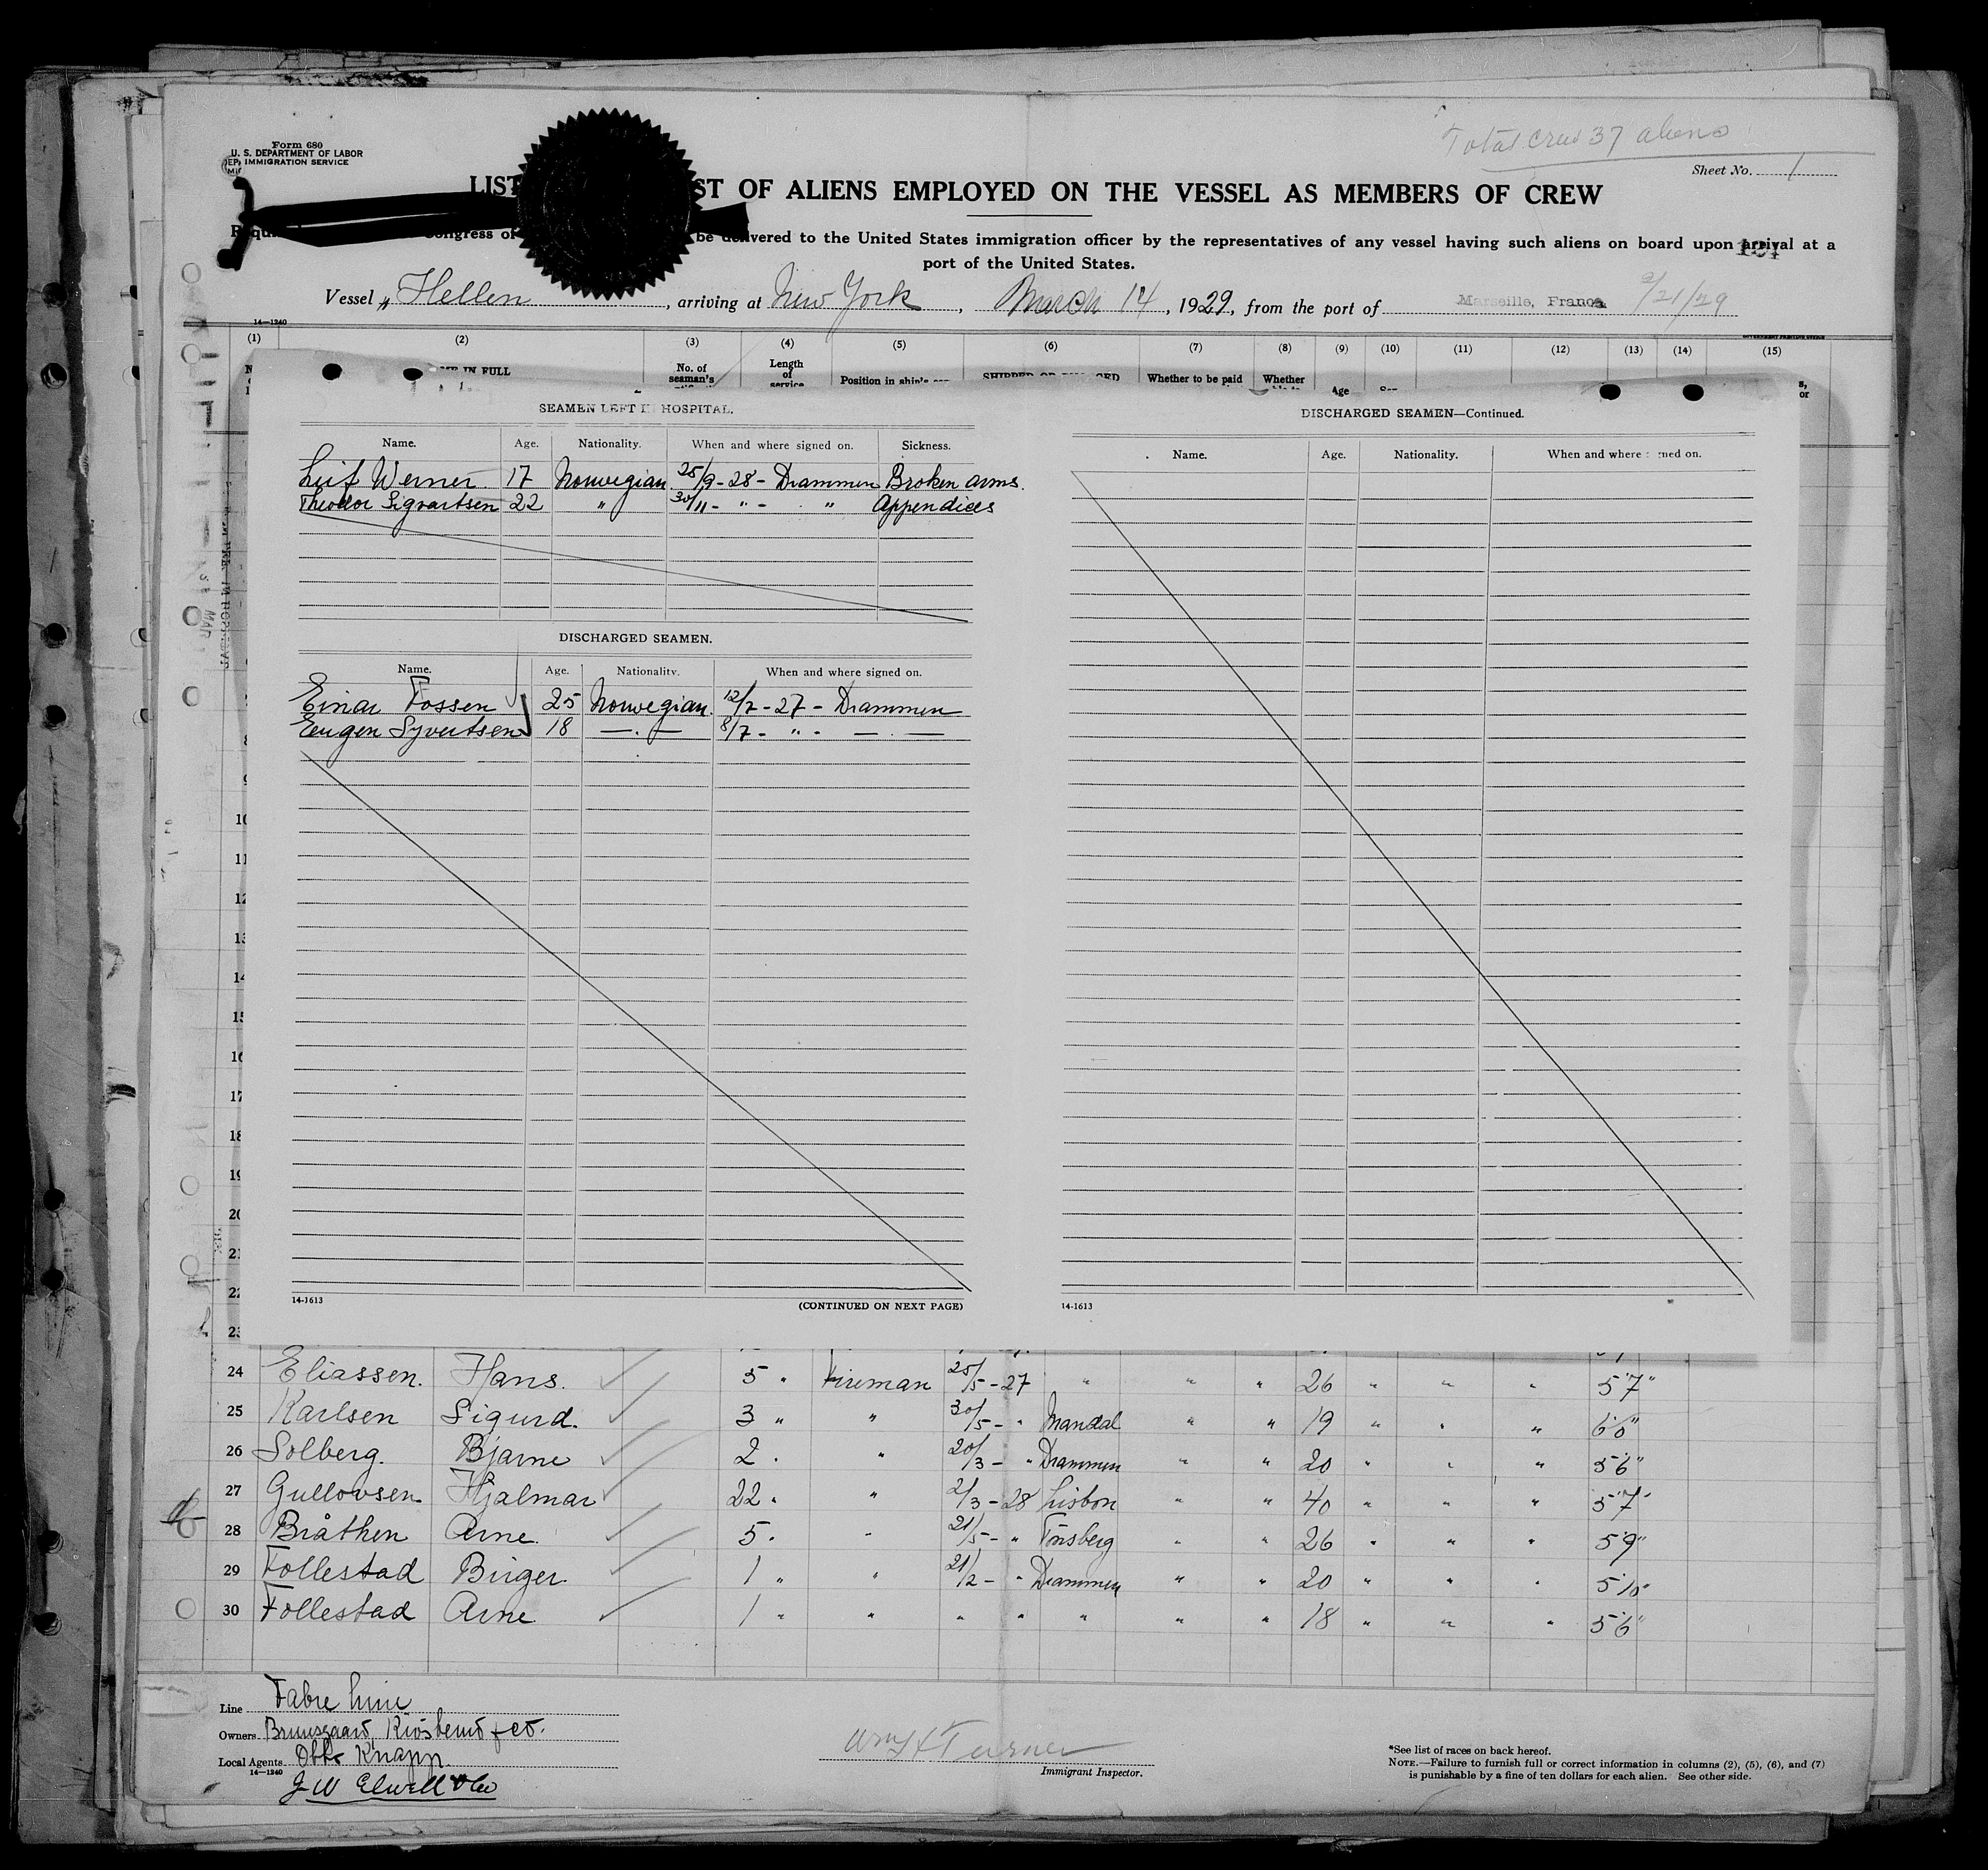 Total crew 37 aliens
Form 680
U. S. DEPARTMENT OF LABOR
IMMIGRATION SERVICE
Sheet No. 1
LIST OF ALIENS EMPLOYED ON THE VESSEL AS MEMBERS OF CREW
Congress of be delivered to the United States immigration officer by the representatives of any vessel having such aliens on board upon arrival at a
port of the United States.
Vessel „ Hellen , arriving at New York , March 14 , 1929, from the port of Marseille, France 2/21/29
14—1240
(1) (2) (3) (4) (5) (6) (7) (8) (9) (10) (11) (12) (13) (14) (15)
IN FULL No. of seaman's Length of service Position in ship's SHIPPED OR ENGAGED Whether to be paid Whether Age
SEAMEN LEFT IN HOSPITAL.
Name. Age. Nationality. When and where signed on. Sickness.
Leif Werner 17 Norwegian 25/9-28- Drammen Broken arms.
Theodor Sigvartsen 22 " 30/11- " - " Appendices
DISCHARGED SEAMEN.
Name. Age. Nationality. When and where signed on.
Einar Fossen 25 Norwegian. 12/7-27- Drammen
Eugen Syvertsen 18 —.— 8/7- " - —.—
(CONTINUED ON NEXT PAGE)
14-1613
DISCHARGED SEAMEN—Continued.
Name. Age. Nationality. When and where signed on.
14-1613
10
11
12
13
14
15
16
17
18
19
20
21
22
23
24 Eliassen. Hans. 5 " Fireman 25/5-27 " " " 26 " " " 5'7"
25 Karlsen Sigurd. 3 " " 30/5- " Mandal " " 19 " " " 6'0"
26 Solberg. Bjarne 2 " " 20/3- " Drammen " " 20 " " " 5'6"
27 Gullovsen. Hjalmar 22 " " 2/3-28 Lisbon " " 40 " " " 5'7"
28 Bråthen Arne. 5 " " 21/5- " Tönsberg " " 26 " " " 5'9"
29 Follestad Birger. 1 " " 21/2- " Drammen " " 20 " " " 5'10"
30 Follestad Arne 1 " " " " " " " 18 " " " 5'6"
Line Fabre Line
Owners Bruusgaard, Kiösterud & Co.
Local Agents Knapp
14—1240
J W Elwell & Co
Wm H Turner
Immigrant Inspector.
*See list of races on back hereof.
NOTE.—Failure to furnish full or correct information in columns (2), (5), (6), and (7)
is punishable by a fine of ten dollars for each alien. See other side.